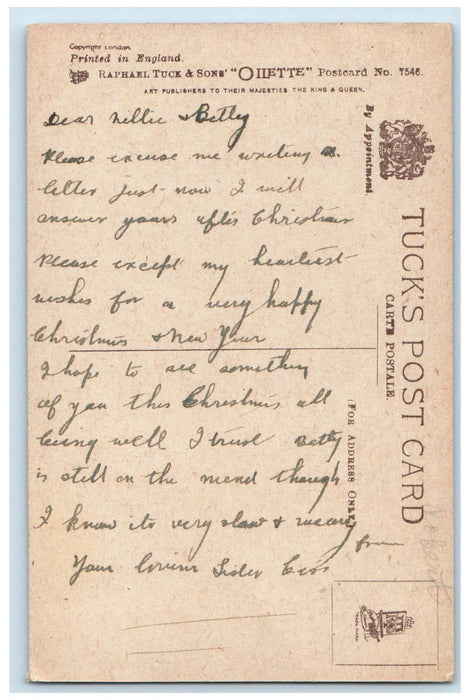 Copyright London.
Printed in England.
RAPHAEL TUCK & SONS' "OILETTE" Postcard No. 7546.
ART PUBLISHERS TO THEIR MAJESTIES THE KING & QUEEN.
By Appointment.
TUCK'S POST CARD
CARTE POSTALE.
(FOR ADDRESS ONLY)
Dear Nellie & Betty
Please excuse me writing a
letter just now I will
answer yours after Christmas
Please except my heartiest
wishes for a very happy
Christmas & New Year
I hope to see something
of you this Christmas all
being well I trust Betty
is still on the mend though
I know its very slow & weary
from
Your loving Sister Cess
TRADE MARK